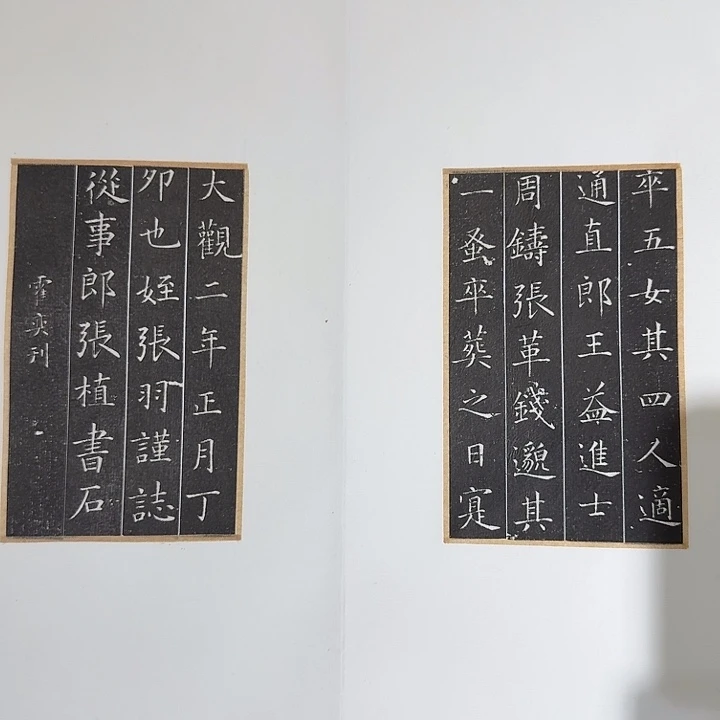 卒五女其四人適
通直郎王益進士
周鑄張革錢邈其
一蚤卒葬之日寔
大觀二年正月丁
卯也姪張羽謹誌
從事郎張植書石
霍奕刊